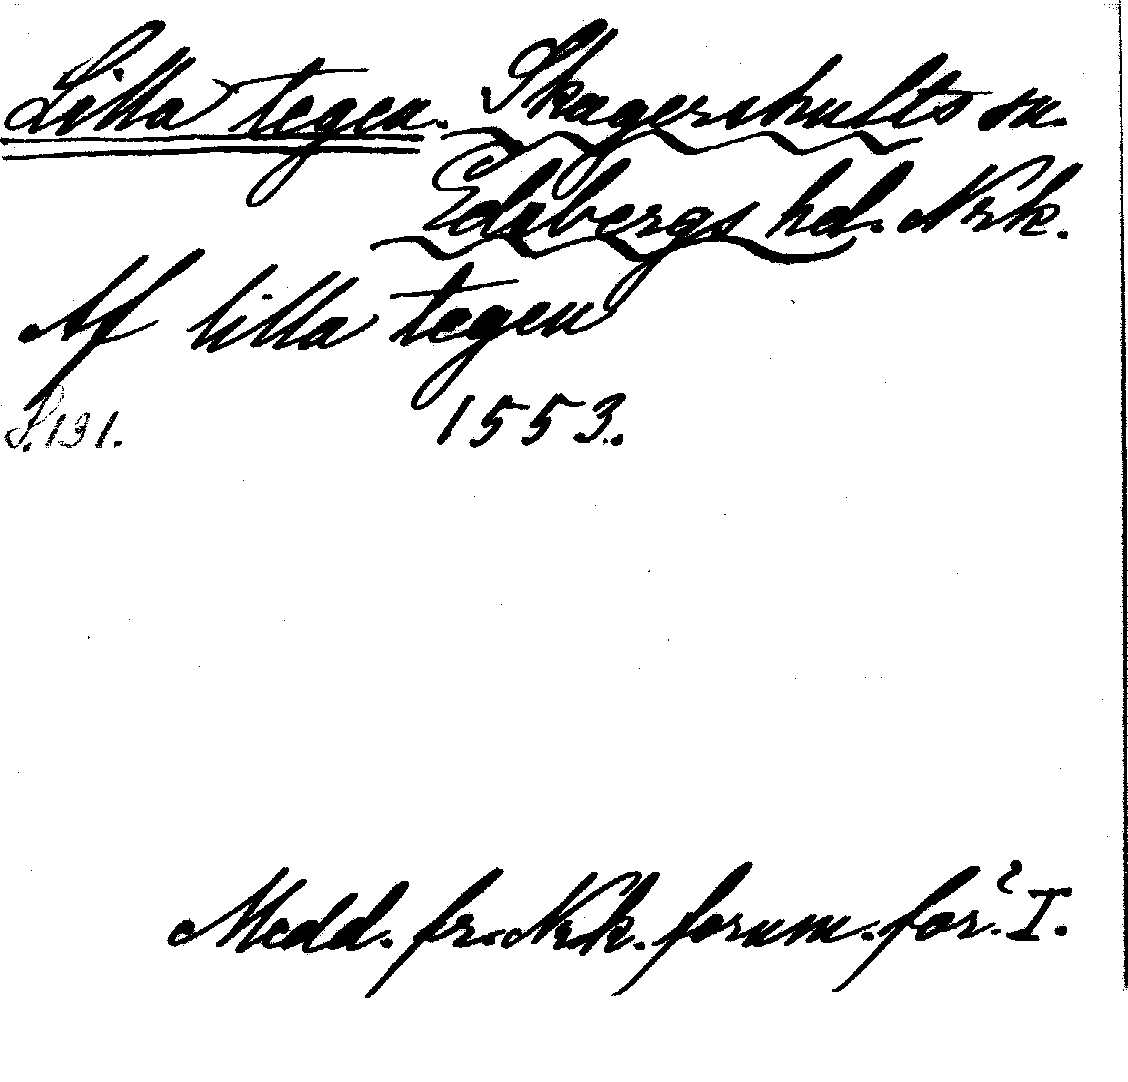 Lilla tegen. Skagershults sn.
Edsbergs hd. Nrk.
Af lilla tegen
S. 191. 1553.
Medd. fr. Nrk. fornm. för. I.